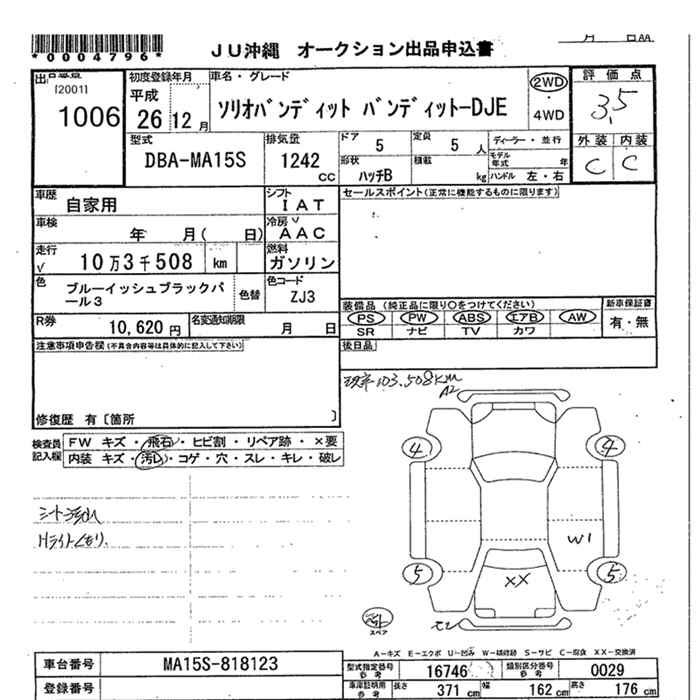 *00004796*
JU沖縄 オークション出品申込書
[2001]
1006
初度登録年月
平成
26 12月
車名・グレード
ソリオバンディット バンディット-DJE
2WD
4WD
評価点
3.5
型式
DBA-MA15S
排気量
1242
cc
ドア
5
定員
5 人
形状
ハッチB
積載
kg
ディーラー・並行
モデル年式 年
ハンドル 左・右
外装 内装
C C
車歴
自家用
シフト
IAT
セールスポイント(正常に機能するものに限ります)
車検
年 月( 日)
冷房
AAC
走行
√ 10万3千508 km
燃料
ガソリン
色
ブルーイッシュブラックパール3
色替
色コード
ZJ3
装備品 (純正品に限り○をつけてください)
PS PW ABS エアB AW
SR ナビ TV カワ
新車保証書
有・無
R券
10,620 円
名変通知期限
月 日
後日品
注意事項申告欄(不具合内容等は具体的に記入して下さい)
現車103,508km
修復歴 有〔箇所 〕
検査員記入欄
FW キズ・飛石・ヒビ割・リペア跡・×要
内装 キズ・汚レ・コゲ・穴・スレ・キレ・破レ
シート汚れ
Hライトくもり.
A2
4 4
W1
5 5
XX
スペア
A-キズ E-エクボ U-凹み W-補修跡 S-サビ C-腐食 XX-交換済
車台番号
MA15S-818123
型式指定番号
参考
16746
類別区分番号
参考
0029
登録番号
車庫証明用
参考
長さ 371 cm
幅 162 cm
高さ 176 cm